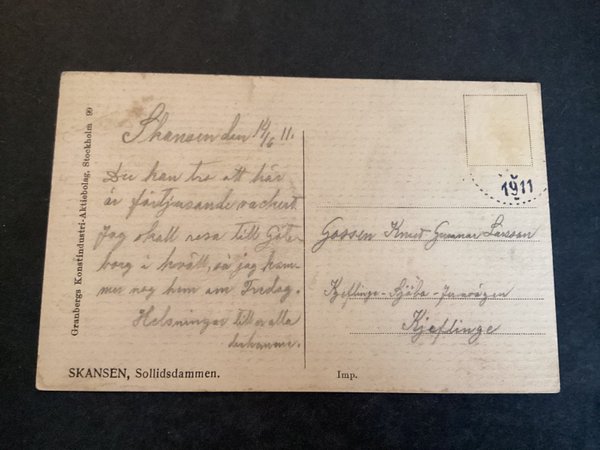 Granbergs Konstindustri-Aktiebolag, Stockholm 99
Skansen den 14/6 11.
Du kan tro att här
är förtjusande vackert
Jag skall resa till Göte-
borg i kväll, så jag kom-
mer nog hem om Fredag.
Helsningar till er alla
derhemma.
SKANSEN, Sollidsdammen.
1911
Gossen Knut Gunnar Larsson
Kjeflinge-Sjöbo-Jernvägen
Kjeflinge
Imp.